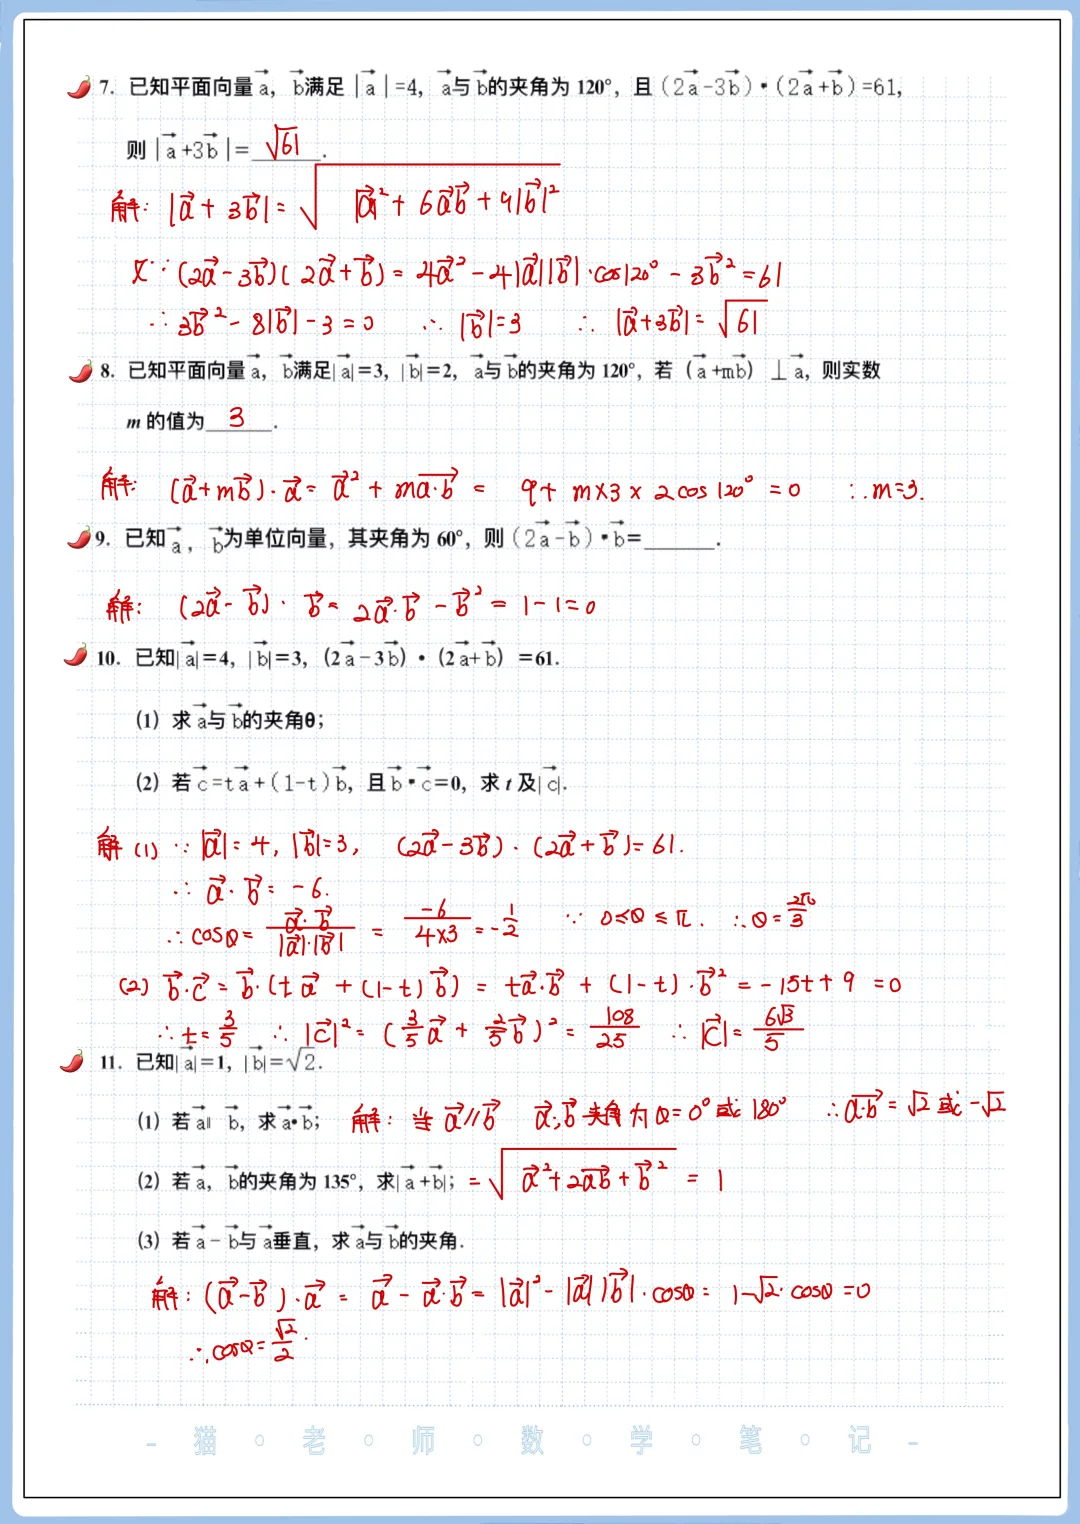 7. 已知平面向量a⃗, b⃗满足|a⃗|=4, a⃗与b⃗的夹角为120°, 且(2a⃗-3b⃗)·(2a⃗+b⃗)=61,
则|a⃗+3b⃗|=√61.
解: |a⃗+3b⃗|=√(|a⃗|²+6a⃗b⃗+9|b⃗|²)
又∵(2a⃗-3b⃗)(2a⃗+b⃗)=4a⃗²-4|a⃗||b⃗|·cos120°-3b⃗²=61
∴3b⃗²-8|b⃗|-3=0 ∴|b⃗|=3 ∴|a⃗+3b⃗|=√61
8. 已知平面向量a⃗, b⃗满足|a⃗|=3, |b⃗|=2, a⃗与b⃗的夹角为120°, 若(a⃗+mb⃗)⊥a⃗, 则实数
m的值为 3 .
解: (a⃗+mb⃗)·a⃗=a⃗²+ma⃗·b⃗=9+m×3×2cos120°=0 ∴m=3.
9. 已知a⃗, b⃗为单位向量, 其夹角为60°, 则(2a⃗-b⃗)·b⃗=______.
解: (2a⃗-b⃗)·b⃗=2a⃗·b⃗-b⃗²=1-1=0
10. 已知|a⃗|=4, |b⃗|=3, (2a⃗-3b⃗)·(2a⃗+b⃗)=61.
(1) 求a⃗与b⃗的夹角θ;
(2) 若c⃗=ta⃗+(1-t)b⃗, 且b⃗·c⃗=0, 求t及|c⃗|.
解 (1) ∵|a⃗|=4, |b⃗|=3, (2a⃗-3b⃗)·(2a⃗+b⃗)=61.
∴a⃗·b⃗=-6.
∴cosθ=a⃗·b⃗/|a⃗|·|b⃗|=-6/4×3=-1/2 ∵0≤θ≤π. ∴θ=2π/3
(2) b⃗·c⃗=b⃗·(ta⃗+(1-t)b⃗)=ta⃗·b⃗+(1-t)·b⃗²=-15t+9=0
∴t=3/5 ∴|c⃗|²=(3/5a⃗+2/5b⃗)²=108/25 ∴|c⃗|=6√3/5
11. 已知|a⃗|=1, |b⃗|=√2.
(1) 若a⃗∥b⃗, 求a⃗·b⃗; 解: 当a⃗∥b⃗ a⃗,b⃗夹角为θ=0°或180° ∴a⃗·b⃗=√2或-√2
(2) 若a⃗, b⃗的夹角为135°, 求|a⃗+b⃗|; =√(a⃗²+2a⃗b⃗+b⃗²)=1
(3) 若a⃗-b⃗与a⃗垂直, 求a⃗与b⃗的夹角.
解: (a⃗-b⃗)·a⃗=a⃗-a⃗·b⃗=|a⃗|²-|a⃗||b⃗|·cosθ=1-√2·cosθ=0
∴cosθ=√2/2.
- 猫·老·师·数·学·笔·记 -